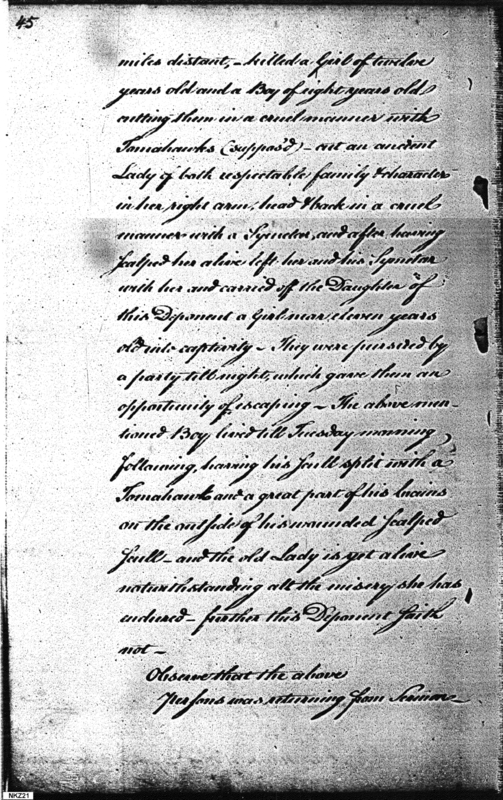 45
miles distant, – killed a Girl of twelve
years old and a Boy of eight years old
cutting them in a cruel manner with
Tomahawks (suppos'd) – cut an ancient
Lady of both respectable family & character
in her right arm, head & back in a cruel
manner with a Symetar, and after having
scalped her alive left her and his Symetar
with her and carried off the Daughter of
this Deponent a Girl near eleven years
old into captivity – They were pursued by
a party till night, which gave them an
opportunity of escaping – The above men-
tioned Boy lived till Tuesday morning
following, having his scull split with a
Tomahawk and a great part of his brains
on the outside of his wounded scalped
scull – and the old Lady is yet alive
notwithstanding all the misery she has
endured – further this Deponent saith
not –
Observe that the above
Persons was returning from Sermon –
NKZ21